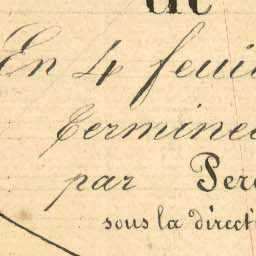 de
En 4 feuil
terminée
par Per
sous la direct